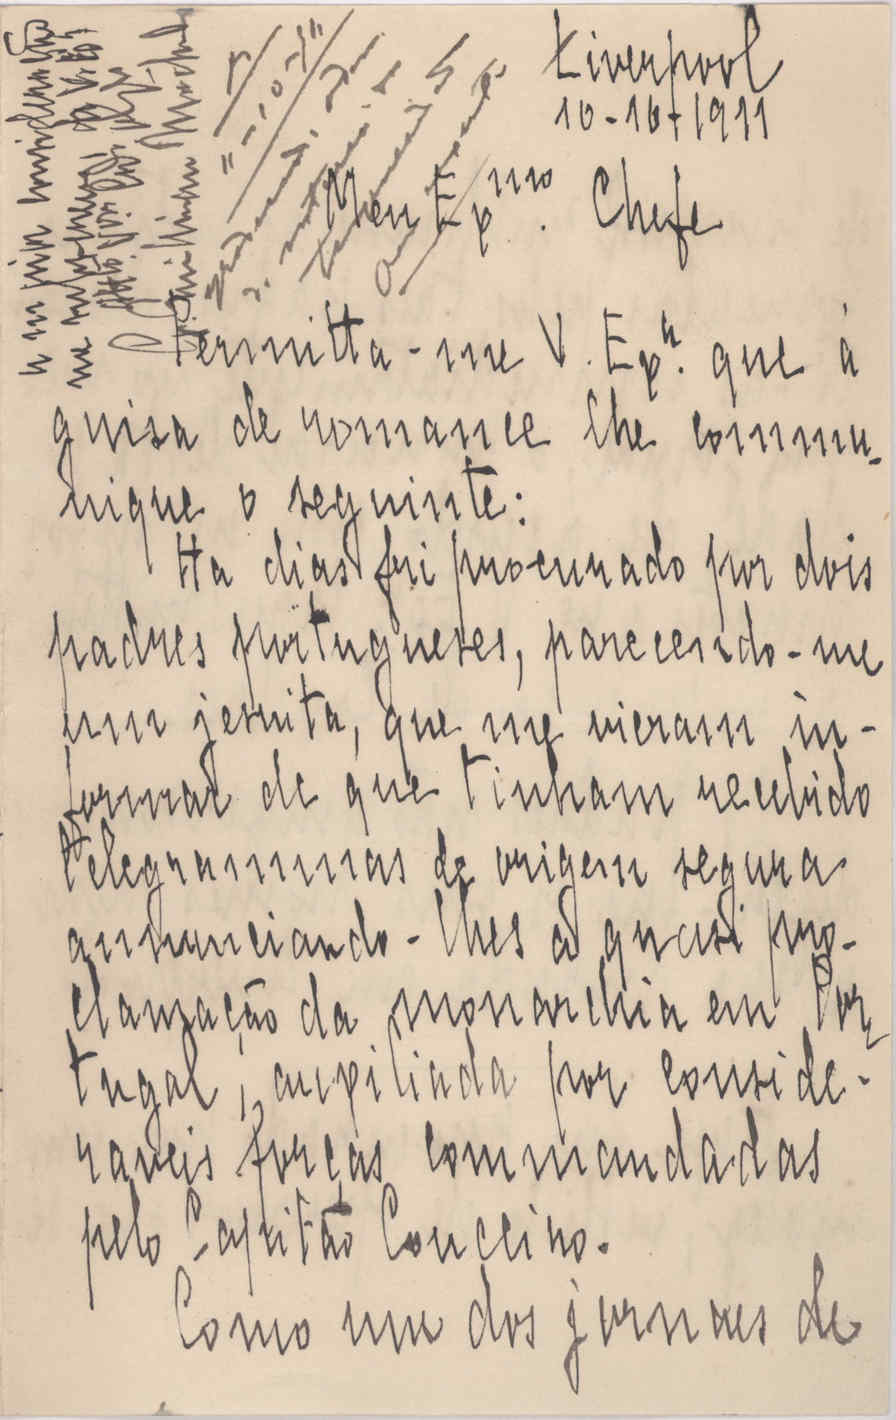 Liverpool
10-10-1911
Meu Exmo. Chefe
Permitta-me V. Exª. que á
guisa de romance lhe commu-
nique o seguinte:
Ha dias fui procurado por dois
padres portugueses, parecendo-me
um jesuita, que me vieram in-
formar de que tinham recebido
telegrammas de origem segura
annunciando-lhes a quasi pro-
clamação da monarchia em Por
tugal, auxiliada por conside-
raveis forças commandadas
pelo Capitão Couceiro.
Como um dos jornaes de